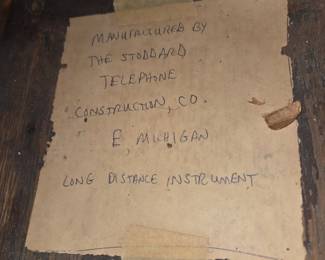 MANUFACTURED BY
THE STODDARD
TELEPHONE
CONSTRUCTION, CO.
E, MICHIGAN
LONG DISTANCE INSTRUMENT